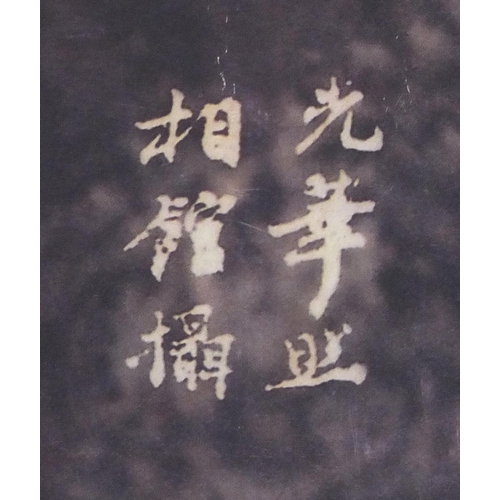 光華照
相館攝